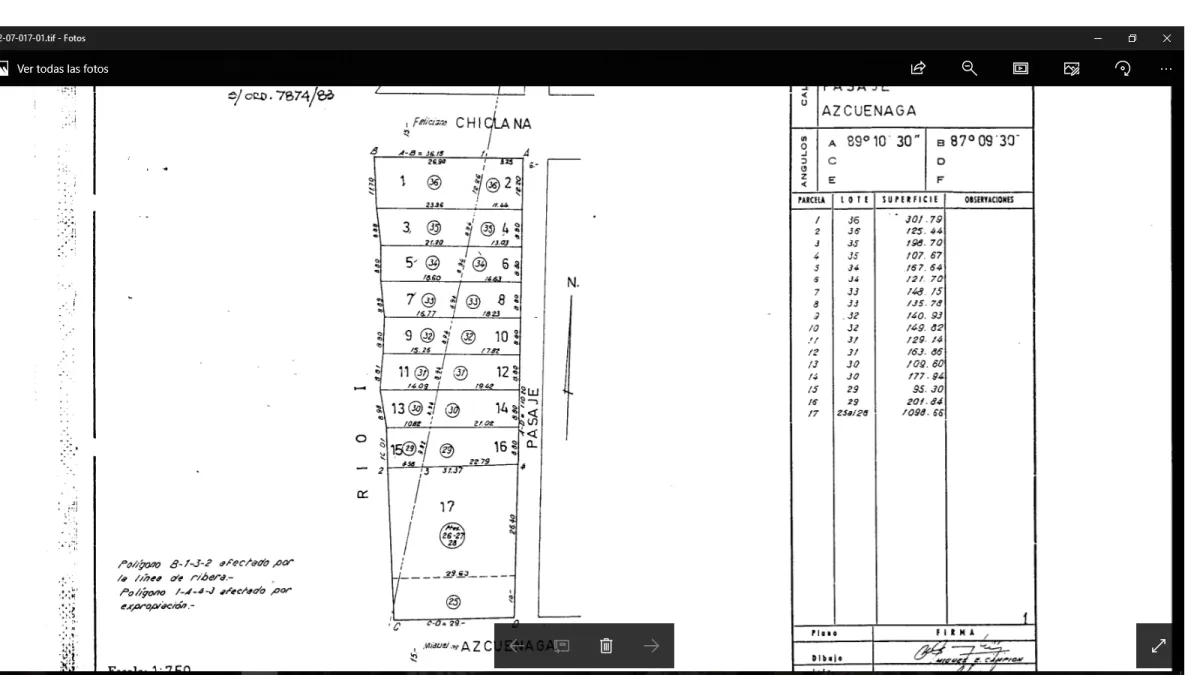 2-07-017-01.tif - Fotos
Ver todas las fotos
S/ ORD. 7874/83
Feliciano CHICLANA
15.-
B A-B = 36.15 1 A
26.90 9.25
6.-
1 36 36 2
23.36 11.44
3 35 35 4
21.20 13.03
5 34 34 6
18.60 14.63
7 33 33 8
16.77 18.23
9 32 32 10
15.26 17.82
11 31 31 12
14.09 19.42
13 30 30 14
10.82 21.02
15 29 29 16
22.79
2 3 31.37 4
17
26-27
28
26.40
29.63
25
10.-
C C-D = 29.- D
Miguel de AZCUENAGA
15.-
RIO I
PASAJE
N.
Polígono B-1-3-2 afectado por
la línea de ribera.-
Polígono 1-A-4-3 afectado por
expropiación.-
Escala: 1:750
PASAJE
AZCUENAGA
ANGULOS
A 89°10'30" B 87°09'30"
C D
E F
PARCELA LOTE SUPERFICIE OBSERVACIONES
1 36 301.79
2 36 125.44
3 35 198.70
4 35 107.67
5 34 167.64
6 34 121.70
7 33 148.15
8 33 135.78
9 32 140.93
10 32 149.82
11 31 129.14
12 31 163.86
13 30 109.60
14 30 177.94
15 29 95.30
16 29 201.84
17 25al28 1098.66
1
Plano FIRMA
Dibujo MIGUEL E. CAMPION